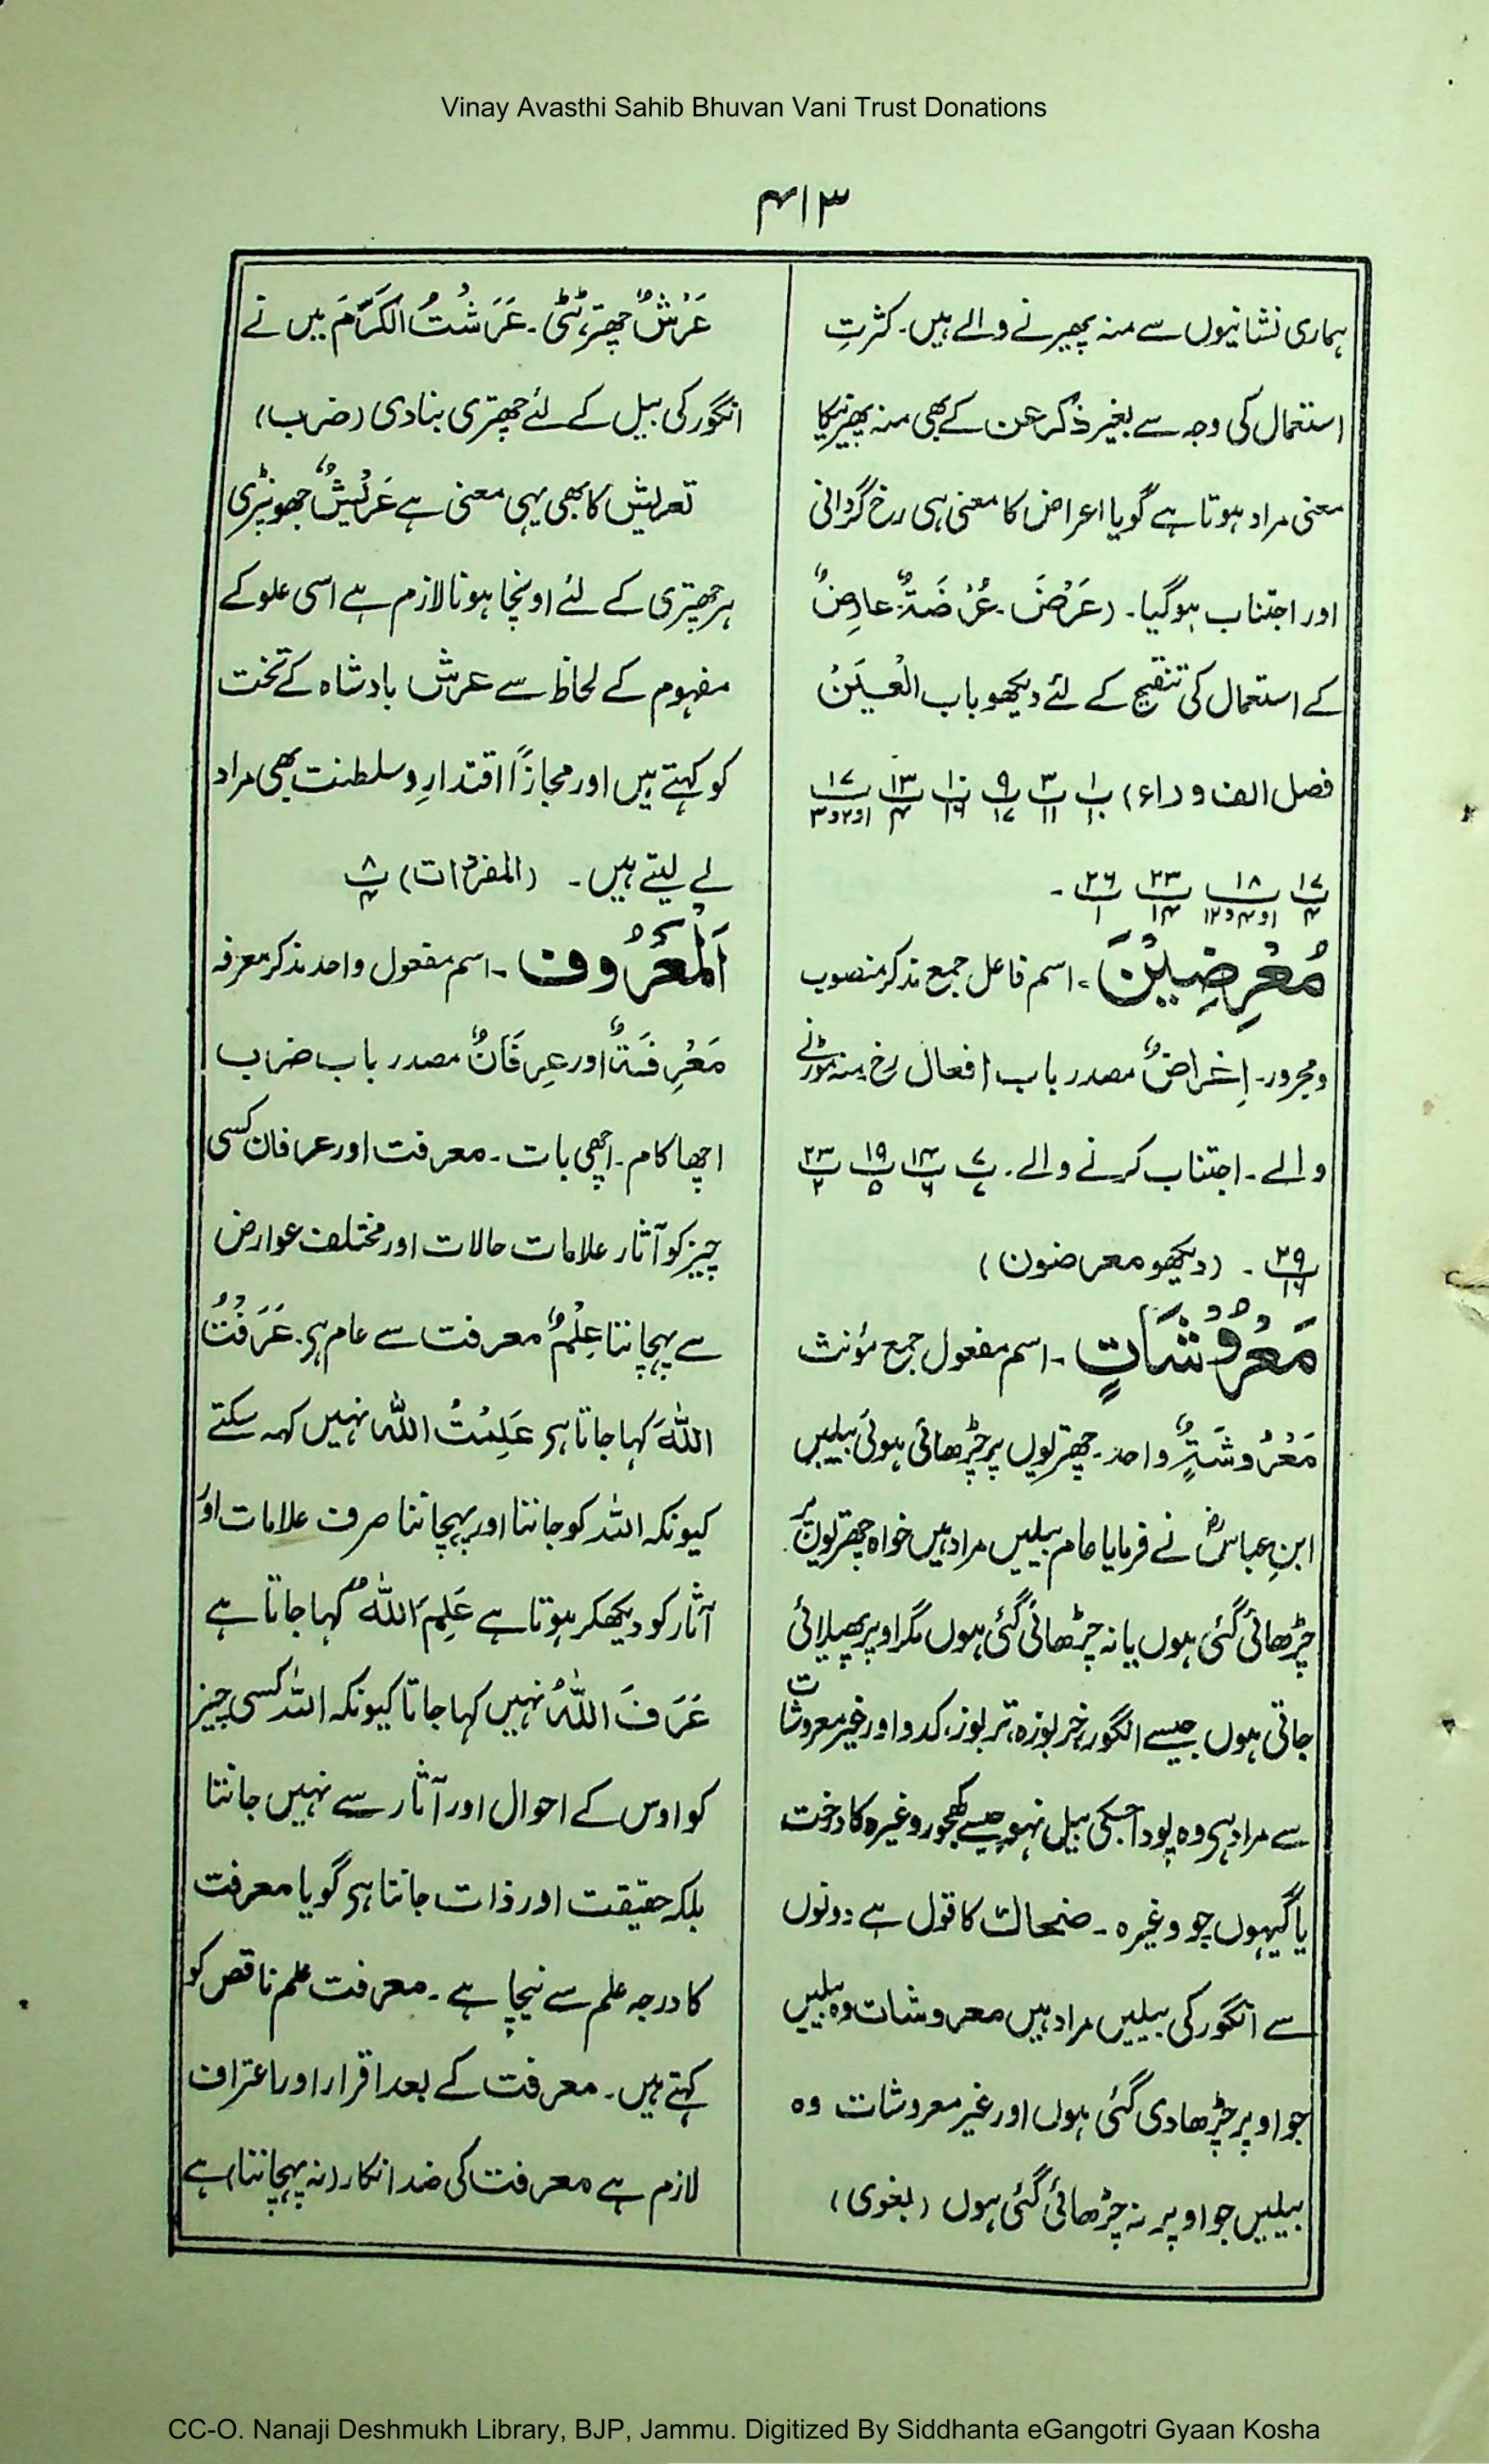 Vinay Avasthi Sahib Bhuvan Vani Trust Donations
۴۱۳
ہماری نشانیوں سے منہ پھیرنے والے ہیں۔ کثرتِ
استعمال کی وجہ سے بغیر ذکر عن کے بھی منہ پھیرنیکا
معنی مراد ہوتا ہے گویا اعراض کا معنی ہی رخ گردانی
اور اجتناب ہوگیا۔ (عَرْضَ۔ عُرْضَۃٌ۔ عارِضٌ
کے استعمال کی تنقیح کے لئے دیکھو باب الْعَیْن
فصل الف و راء) پ۱/۱۰ پ۳/۱۱ پ۹/۱۷ پ۱۰/۱۶ پ۱۳/۴ پ۱۷/۱و۲و۳
پ۱۷/۴ پ۱۸/۱و۴و۱۲ پ۲۳/۱۴ پ۲۶/۱ ۔
مُعْرِضِیْنَ۔ اسم فاعل جمع مذکر منصوب
ومجرور۔ اِعْرَاضٌ مصدر باب افعال رخ منہ موڑنے
والے۔ اجتناب کرنے والے۔ پ۷/۷ پ۱۴/۶ پ۱۹/۵ پ۲۳/۲
پ۲۹/۱۶ ۔ (دیکھو معرضون)
مَعْرُوْشَاتٍ۔ اسم مفعول جمع مؤنث
مَعْرُوشَۃٍ واحد۔ چھتریوں پر چڑھائی ہوئی بیلیں
ابنِ عباسؓ نے فرمایا عام بیلیں مراد ہیں خواہ چھتریوں پر
چڑھائی گئی ہوں یا نہ چڑھائی گئی ہوں مگر اوپر پھیلائی
جاتی ہوں جیسے انگور، خربوزہ، تربوز، کدو اور غیر معروشات
سے مراد ہی وہ پودا جسکی بیل نہو جیسے کھجور وغیرہ کا درخت
یا گیہوں جو وغیرہ۔ ضحاک کا قول ہے دونوں
سے انگور کی بیلیں مراد ہیں معروشات وہ بیلیں
جو اوپر چڑھادی گئی ہوں اور غیر معروشات وہ
بیلیں جو اوپر نہ چڑھائی گئی ہوں (بغوی)
عَرْشٌ چھتر، ٹٹی۔ عَرَشْتُ الْکَرْمَ میں نے
انگور کی بیل کے لئے چھتری بنادی (ضرب)
تعریش کا بھی یہی معنی ہے عَرِیْشٌ جھونپڑی
ہر چھتری کے لئے اونچا ہونا لازم ہے اسی علو کے
مفہوم کے لحاظ سے عرش بادشاہ کے تخت
کو کہتے ہیں اور مجازًا اقتدارِ و سلطنت بھی مراد
لے لیتے ہیں۔ (المفردات) پ۸/۴
اَلْمَعْرُوف۔ اسم مفعول واحد مذکر معرفہ
مَعْرِفَۃٌ اور عِرفَانٌ مصدر باب ضرب
اچھا کام۔ اچھی بات۔ معرفت اور عرفان کسی
چیز کو آثار علامات حالات اور مختلف عوارض
سے پہچاننا عِلْمٌ معرفت سے عام ہی۔ عَرَفْتُ
اللّٰہَ کہا جاتا ہی عَلِمْتُ اللّٰہ نہیں کہہ سکتے
کیونکہ اللہ کو جاننا اور پہچاننا صرف علامات اور
آثار کو دیکھکر ہوتا ہے عَلِمَ اللّٰہُ کہا جاتا ہے
عَرَفَ اللّٰہُ نہیں کہا جاتا کیونکہ اللہ کسی چیز
کو اوس کے احوال اور آثار سے نہیں جانتا
بلکہ حقیقت اور ذات جانتا ہی گویا معرفت
کا درجہ علم سے نیچا ہے۔ معرفت علم ناقص کو
کہتے ہیں۔ معرفت کے بعد اقرار اور اعتراف
لازم ہے معرفت کی ضد انکار (نہ پہچاننا) ہے
CC-O. Nanaji Deshmukh Library, BJP, Jammu. Digitized By Siddhanta eGangotri Gyaan Kosha